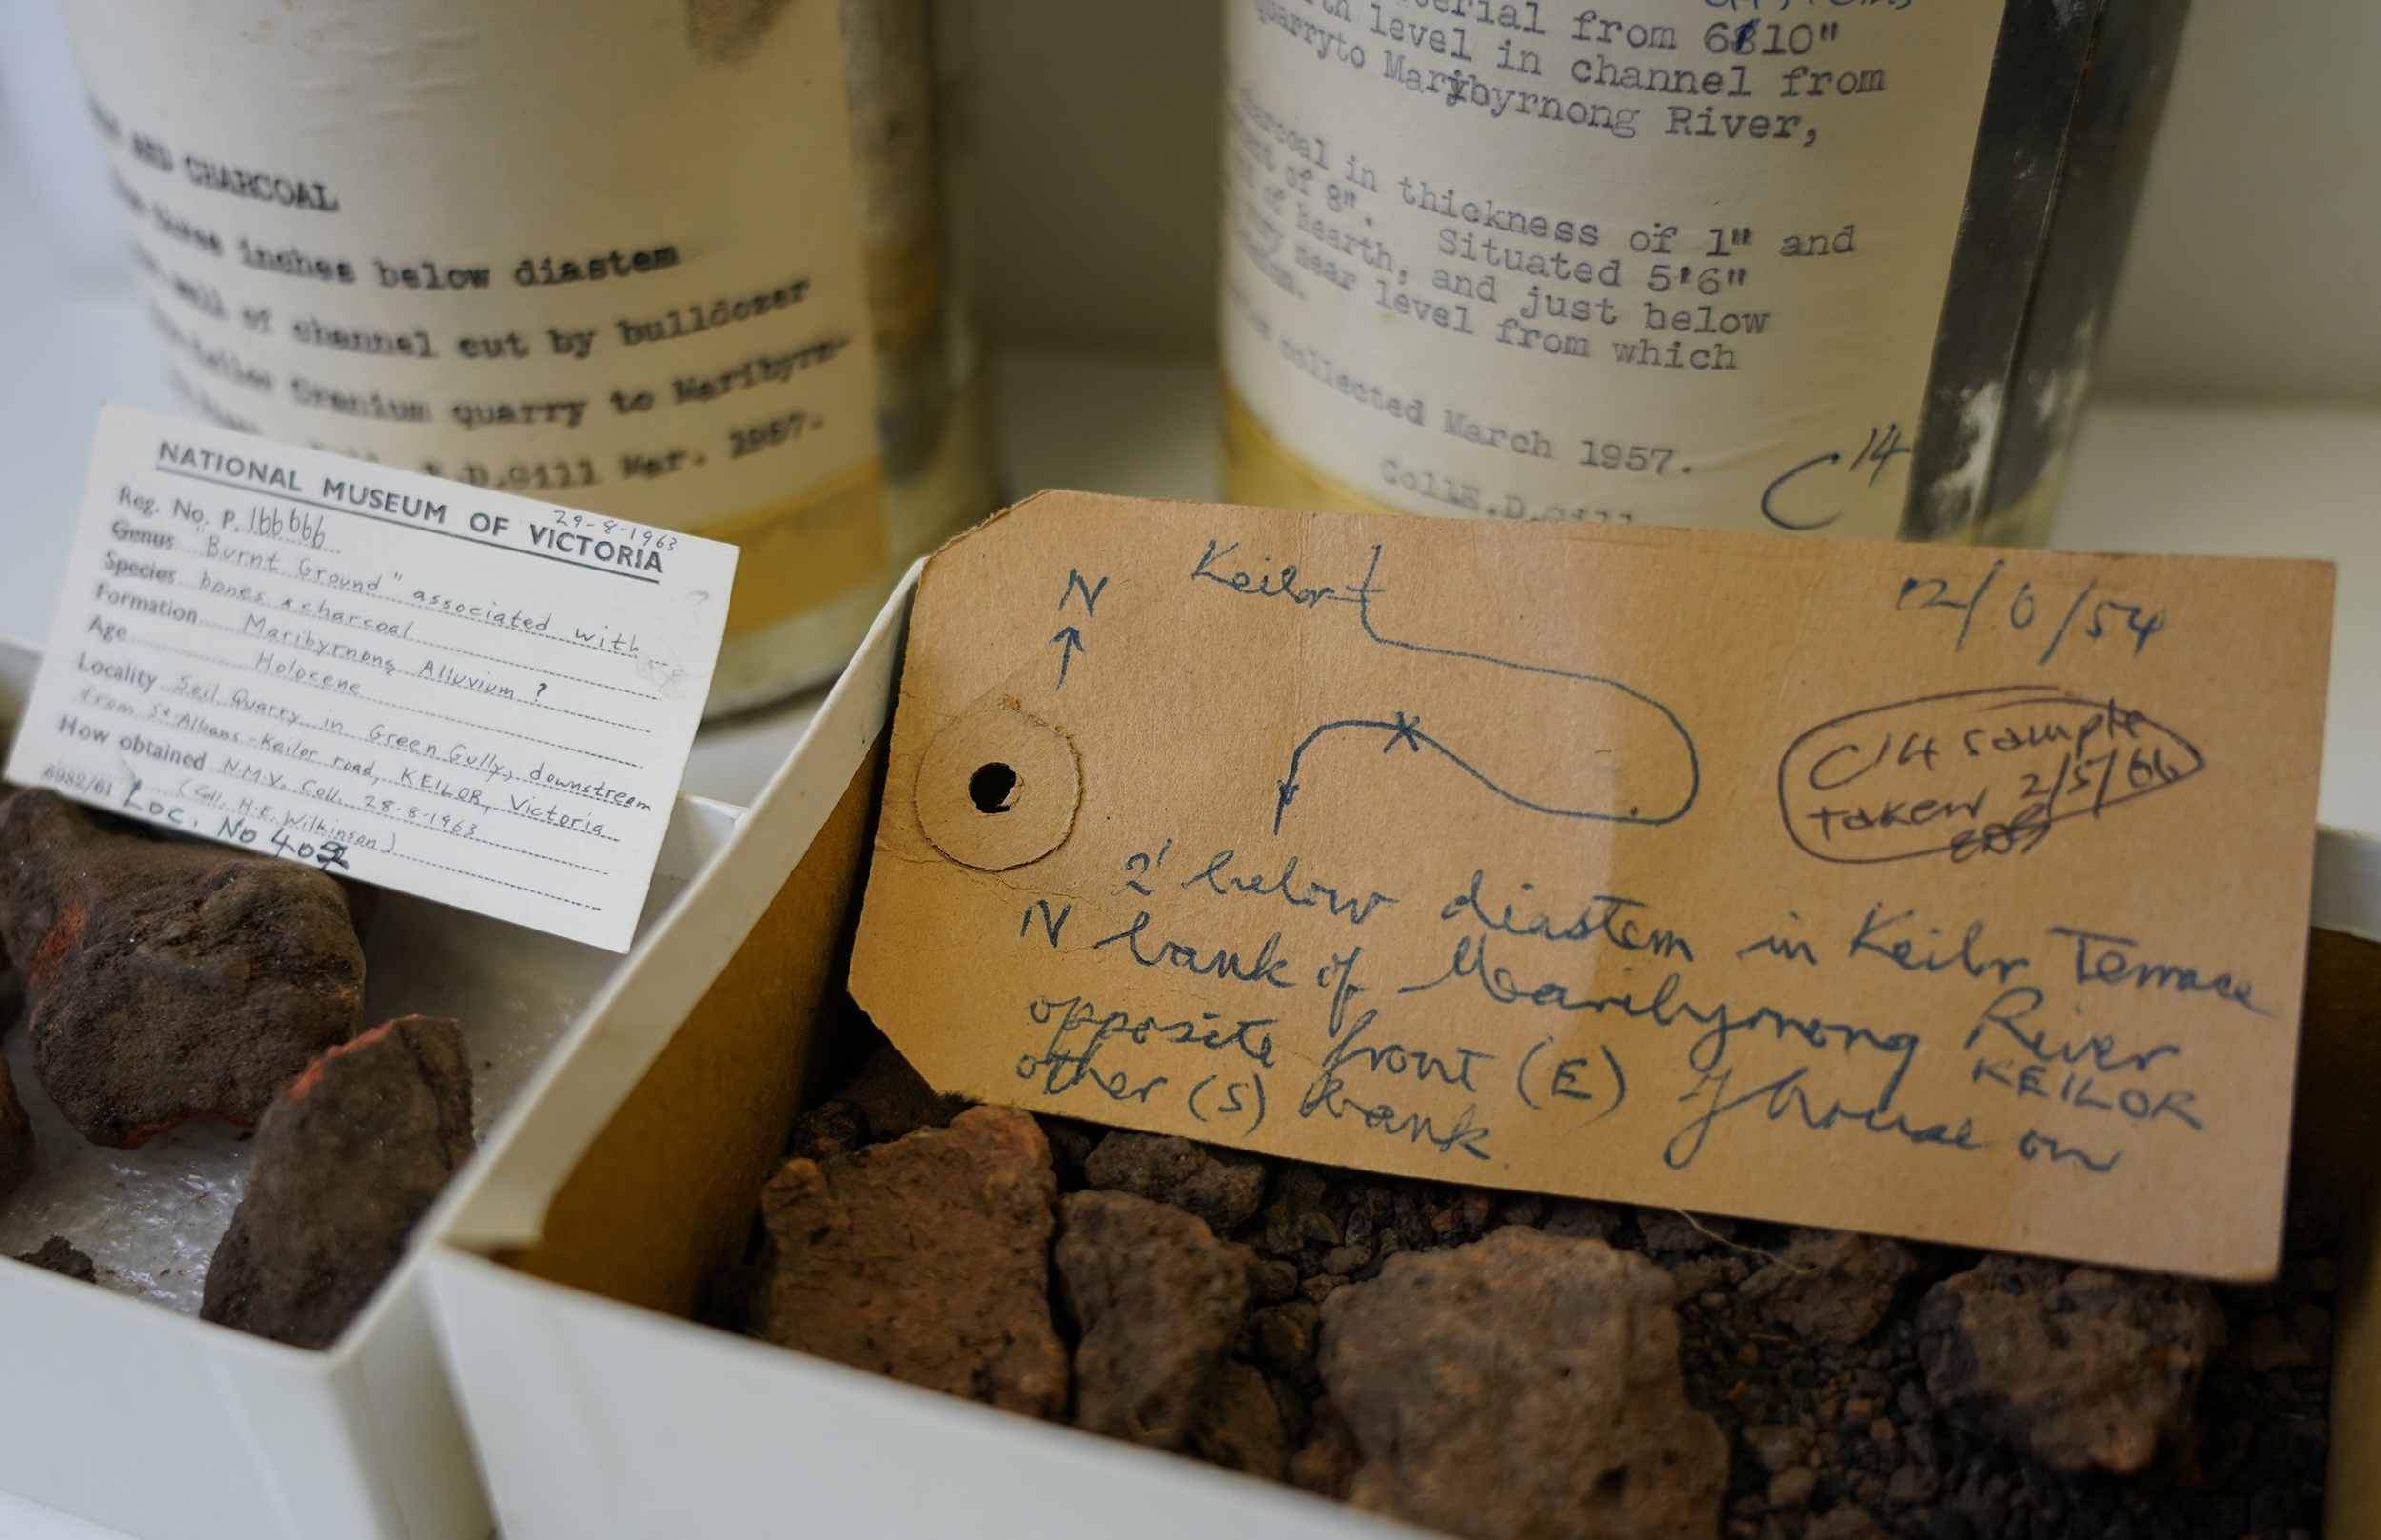 AND CHARCOAL
three inches below diastem
wall of channel cut by bulldozer
Cranium quarry to Maribyrn-
E.D.Gill Mar. 1957.
from 6810"
level in channel from
quarry to Maribyrnong River,
charcoal in thickness of 1" and
of 8". Situated 5'6"
of hearth, and just below
near level from which
collected March 1957.
Coll E.D.Gill
C14
NATIONAL MUSEUM OF VICTORIA
29-8-1963
Reg. No. P. 166666
Genus "Burnt Ground" associated with
Species bones & charcoal
Formation Maribyrnong Alluvium ?
Age Holocene
Locality Soil Quarry in Green Gully, downstream
from St. Albans-Keilor road, KEILOR, Victoria
How obtained N.M.V. Coll. 28-8-1963
(Coll. H.E. Wilkinson)
6982/61 Loc. No 40
N
Keilor
12/6/54
C14 sample
taken 2/5/66
2' below diastem in Keilor Terrace
N bank of Maribyrnong River
KEILOR
opposite front (E) of house on
other (S) bank